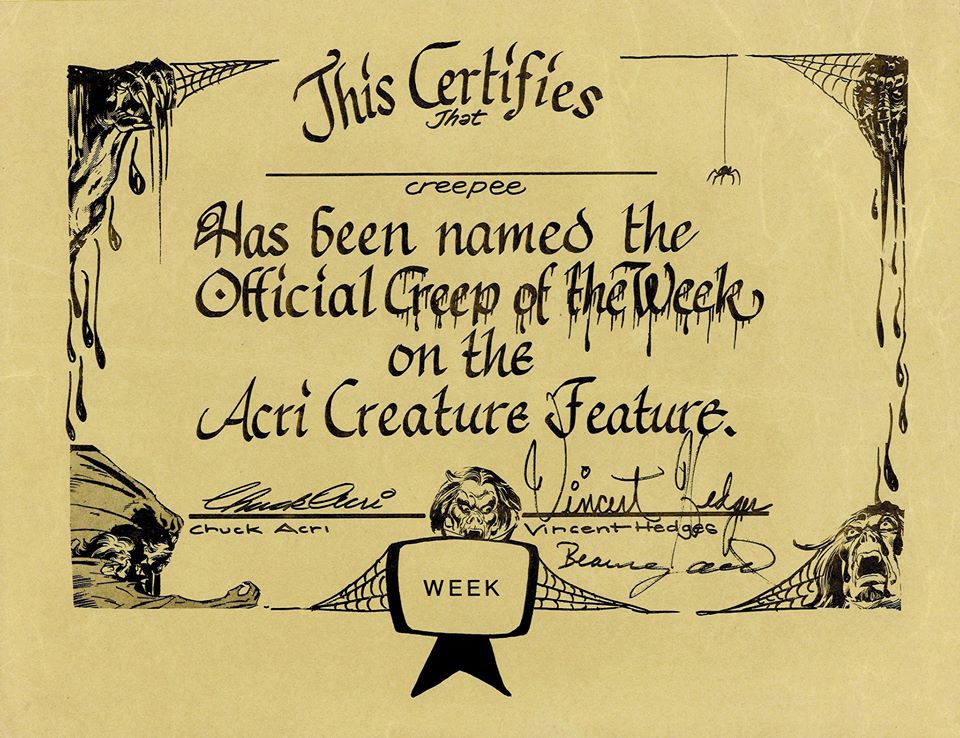 This Certifies
That
creepee
Has been named the
Official Creep of the Week
on the
Acri Creature Feature.
Chuck Acri
Vincent Hedges
Chuck Acri
Vincent Hedges
Beauregard
WEEK